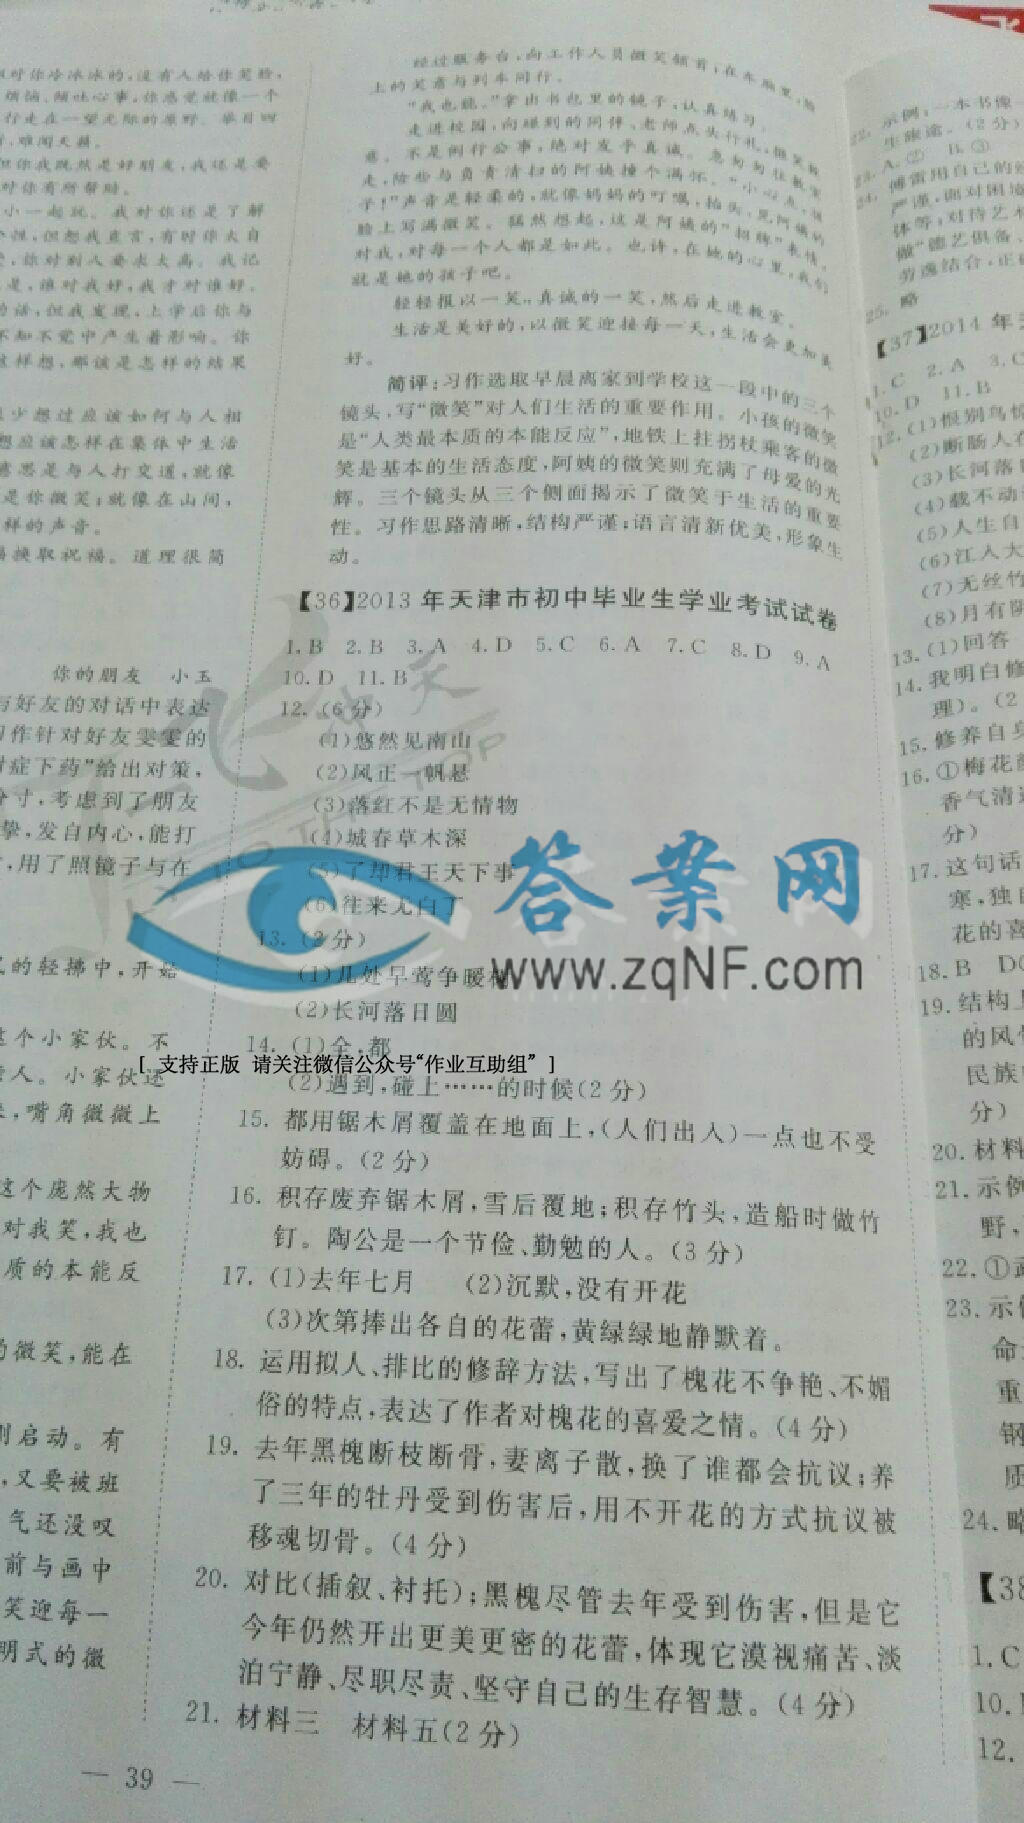 对你冷冰冰的,没有人给你笑脸,
烦恼、倾吐心事,你感觉就像一个
行走在一望无际的原野。举目四
,难闻天籁。
但你我既然是好朋友,我还是要
对你有所帮助。
小一起玩。我对你还是了解
但想我直言,有时你太自
你对别人要求太高。我记
是,谁对我好,我才对谁好。
的话,但我发现,上学后你与
不知不觉中产生着影响。你
这样想,那该是怎样的结果
少想过应该如何与人相
想应该怎样在集体中生活
意思是与人打交道,就像
是你微笑;就像在山间,
样的声音。
换取祝福。道理很简
你的朋友 小玉
与好友的对话中表达
习作针对好友雯雯的
对症下药”给出对策,
分寸,考虑到了朋友
挚,发自内心,能打
,用了照镜子与在
的轻拂中,开始
这个小家伙。不
人。小家伙还
,嘴角微微上
这个庞然大物
对我笑,我也
质的本能反
的微笑,能在
刚启动。有
,又要被班
气还没叹
前与画中
笑迎每一
明式的微
— 39 —
经过服务台,向工作人员微笑颔首;在车厢里,脸
上的笑意与列车同行。
“我也能。”拿出书包里的镜子,认真练习。
走进校园,向碰到的同伴、老师点头行礼,微笑致
意。不是例行公事,绝对发乎真诚。急匆匆往教室
走,险些与负责清扫的阿姨撞个满怀。“小心点,孩
子!”声音是轻柔的,就像妈妈的叮嘱,抬头,见阿姨的
脸上写满微笑。猛然想起,这是阿姨的“招牌”表情。
对我,对每一个人都是如此。也许,在她的心里,我们
就是她的孩子吧。
轻轻报以一笑,真诚的一笑,然后走进教室。
生活是美好的,以微笑迎接每一天,生活会更加美
好。
简评:习作选取早晨离家到学校这一段中的三个
镜头,写“微笑”对人们生活的重要作用。小孩的微笑
是“人类最本质的本能反应”,地铁上拄拐杖乘客的微
笑是基本的生活态度,阿姨的微笑则充满了母爱的光
辉。三个镜头从三个侧面揭示了微笑于生活的重要
性。习作思路清晰,结构严谨;语言清新优美,形象生
动。
【36】2013年天津市初中毕业生学业考试试卷
1.B 2.B 3.A 4.D 5.C 6.A 7.C 8.D 9.A
10.D 11.B
12.(6分)
(1)悠然见南山
(2)风正一帆悬
(3)落红不是无情物
(4)城春草木深
(5)了却君王天下事
(6)往来无白丁
13.(2分)
(1)几处早莺争暖树
(2)长河落日圆
14.(1)全,都
(2)遇到,碰上……的时候(2分)
15. 都用锯木屑覆盖在地面上,(人们出入)一点也不受
妨碍。(2分)
16. 积存废弃锯木屑,雪后覆地;积存竹头,造船时做竹
钉。陶公是一个节俭、勤勉的人。(3分)
17. (1)去年七月 (2)沉默,没有开花
(3)次第捧出各自的花蕾,黄绿绿地静默着。
18. 运用拟人、排比的修辞方法,写出了槐花不争艳、不媚
俗的特点,表达了作者对槐花的喜爱之情。(4分)
19. 去年黑槐断枝断骨,妻离子散,换了谁都会抗议;养
了三年的牡丹受到伤害后,用不开花的方式抗议被
移魂切骨。(4分)
20. 对比(插叙、衬托);黑槐尽管去年受到伤害,但是它
今年仍然开出更美更密的花蕾,体现它漠视痛苦、淡
泊宁静、尽职尽责、坚守自己的生存智慧。(4分)
21. 材料三 材料五(2分)
答案网
www.zqNF.com
[ 支持正版 请关注微信公众号“作业互助组” ]
飞
22. 示例:一本书像一
生旅途。(2分)
23. A.② B.③
24. 傅雷用自己的
严谨,面对困
体等,对待艺术
做“德艺俱备、
劳逸结合,正
25. 略
【37】2014年天
1.C 2.A 3.C
10.D 11.B
12.(1)恨别鸟惊
(2)断肠人在
(3)长河落
(4)载不动
(5)人生自
(6)江人大
(7)无丝竹
(8)月有阴
13.(1)回答
14. 我明白修
理)。(2
15. 修养自身
16. ①梅花
香气清
分)
17. 这句话
寒,独自
花的喜
18. B D
19. 结构上
的风骨
民族
分)
20. 材料
21. 示例
野,
22. ①
23. 示例
命
重
钢
质
24. 略
【38
1.C
10.
12.